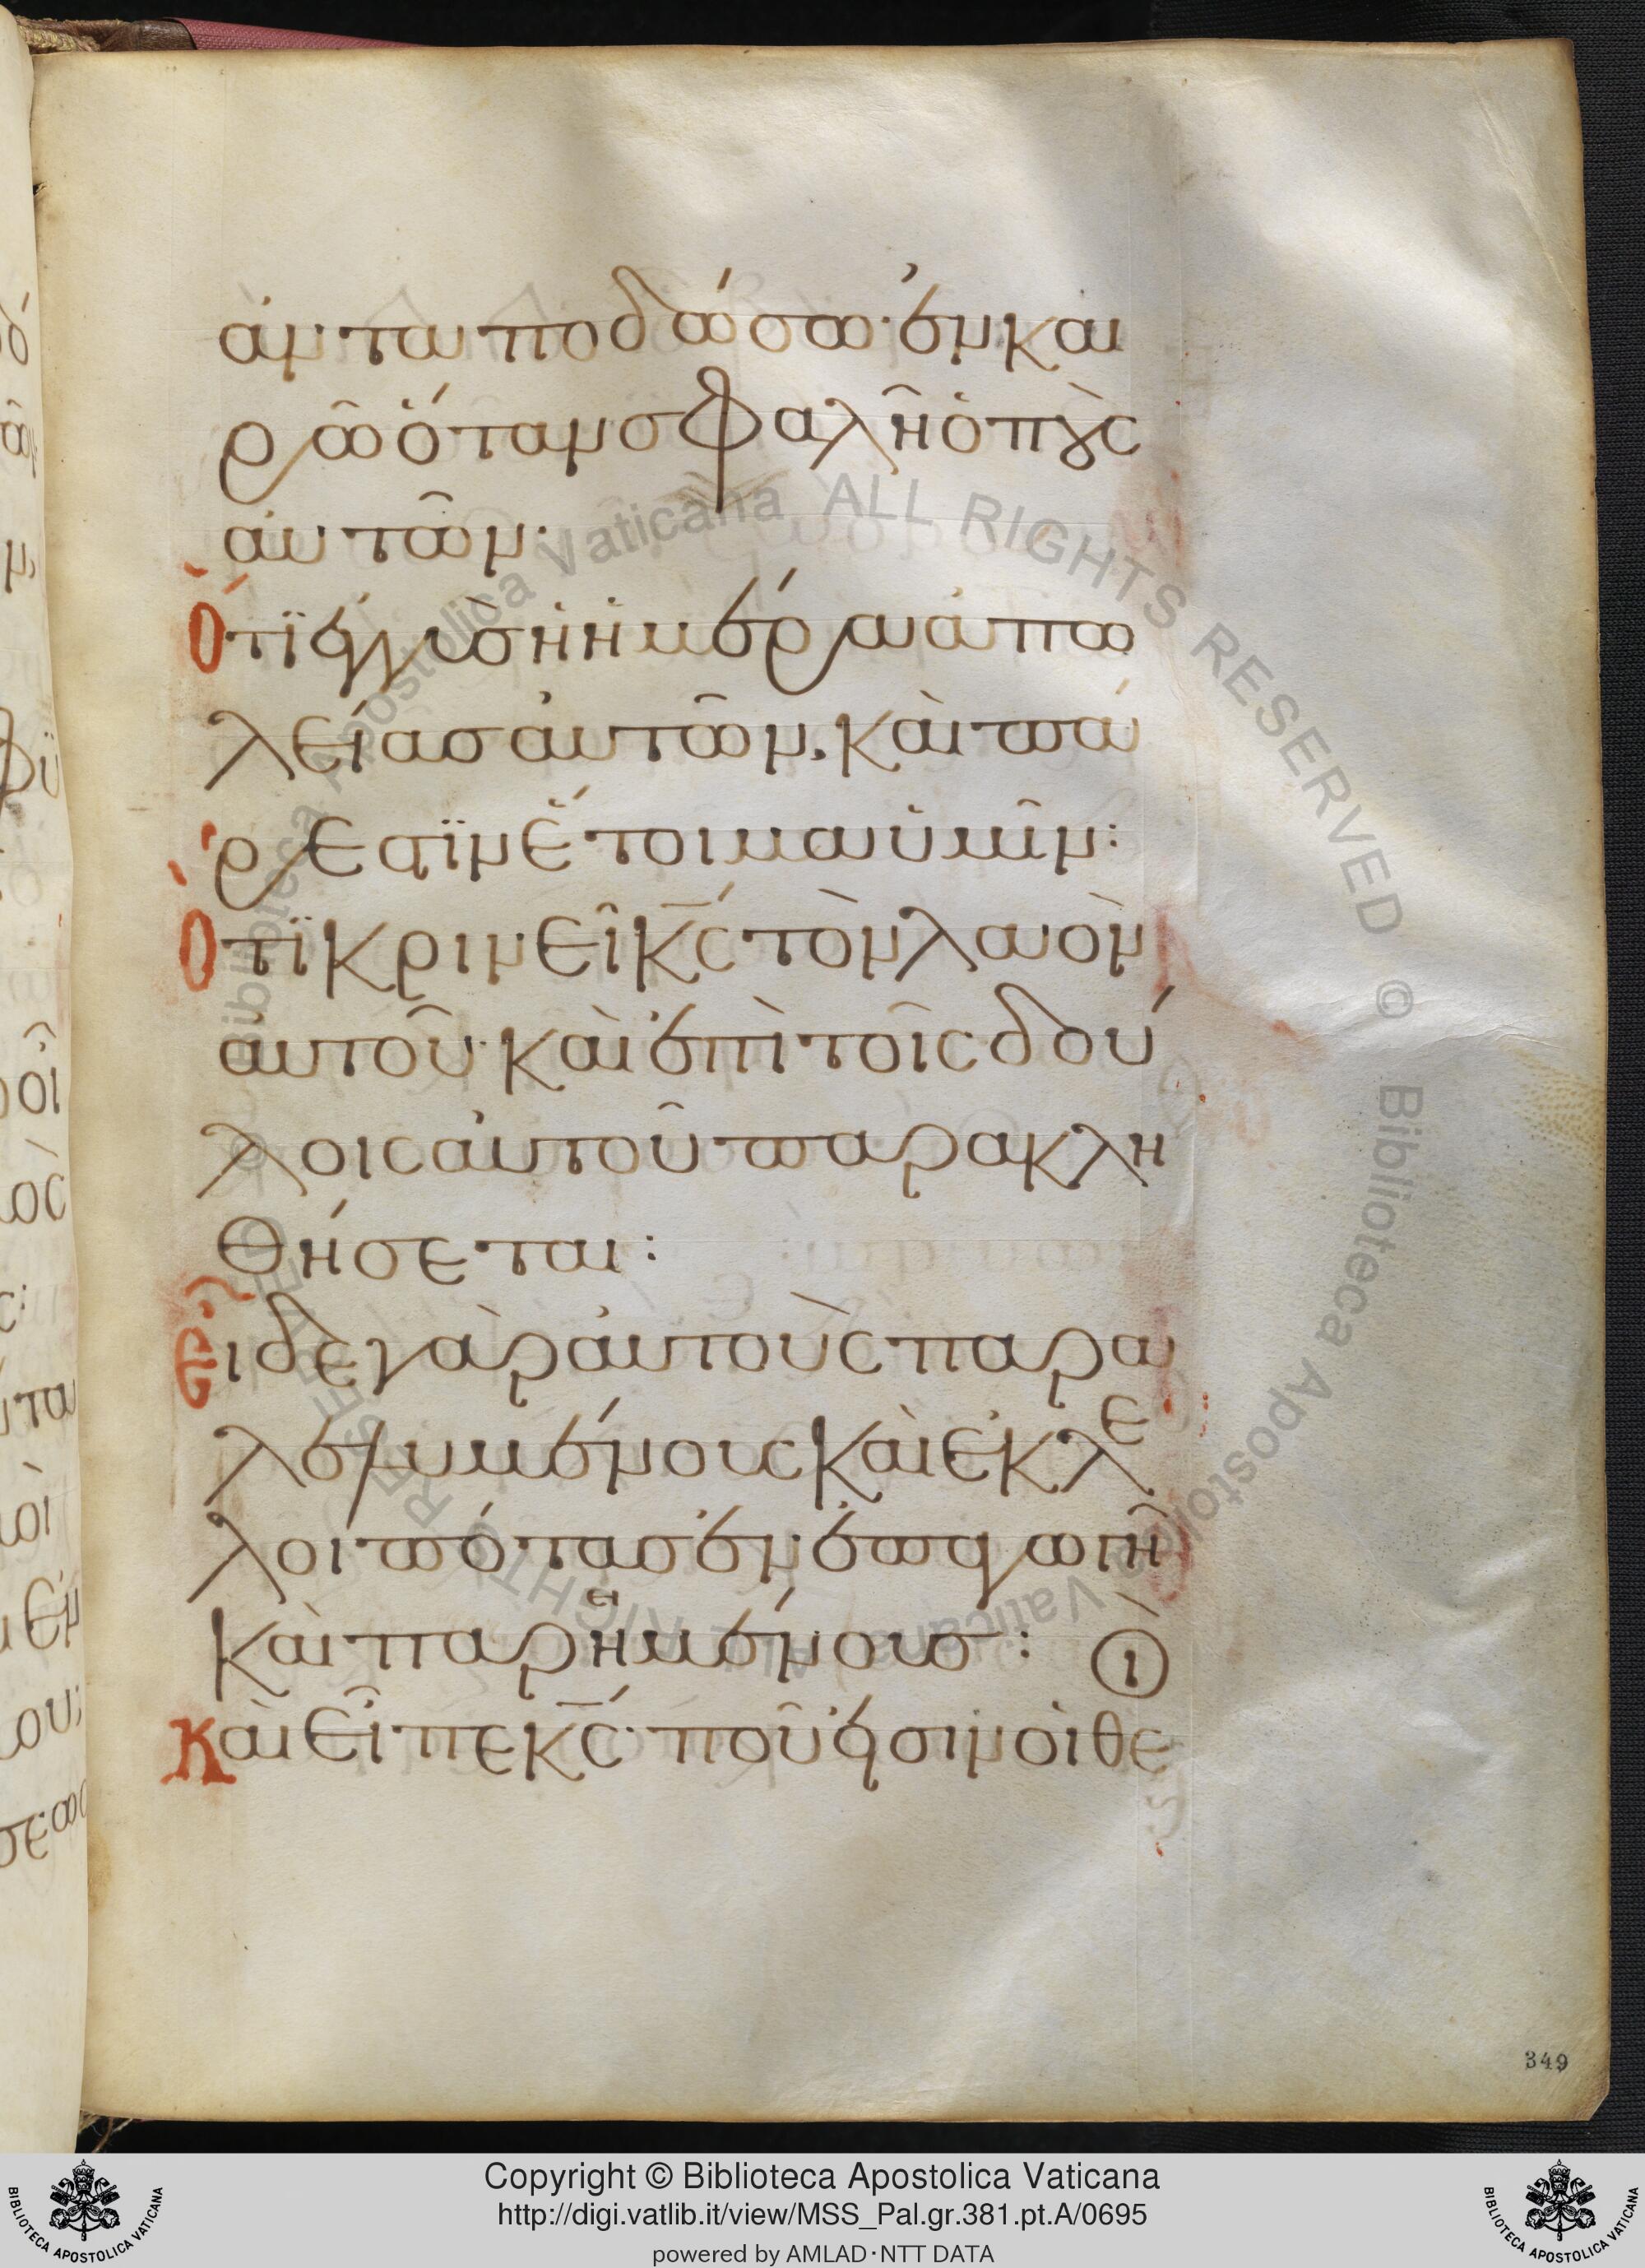 ἀνταποδώσω· ἐν και
ρῶ ὅταν σφαλῆ ὁ πȣ̀ς
αὐτῶν·
Ὅτι ἐγγὺς ἡ ἡμέρα ἀπω
λείας αὐτῶν, καὶ πά
ρεστιν ἕτοιμα ὑμῖν:
Ὅτι κρινεῖ κ̅ς̅ τὸν λαὸν
αὐτοῦ· καὶ ἐπὶ τοῖς δού
λοις αὐτοῦ παρακλη
θήσεται:
Εἶδε γὰρ αὐτοὺς παρα
λελυμένους καὶ ἐκλε
λοιπότας ἐν ἐπαγωγῆ
καὶ παρειμένους: ι
Καὶ εἶπε κ̅ς̅· ποῦ εἰσιν οἱ θε
349
Copyright © Biblioteca Apostolica Vaticana
http://digi.vatlib.it/view/MSS_Pal.gr.381.pt.A/0695
powered by AMLAD·NTT DATA
BIBLIOTECA APOSTOLICA VATICANA
BIBLIOTECA APOSTOLICA VATICANA